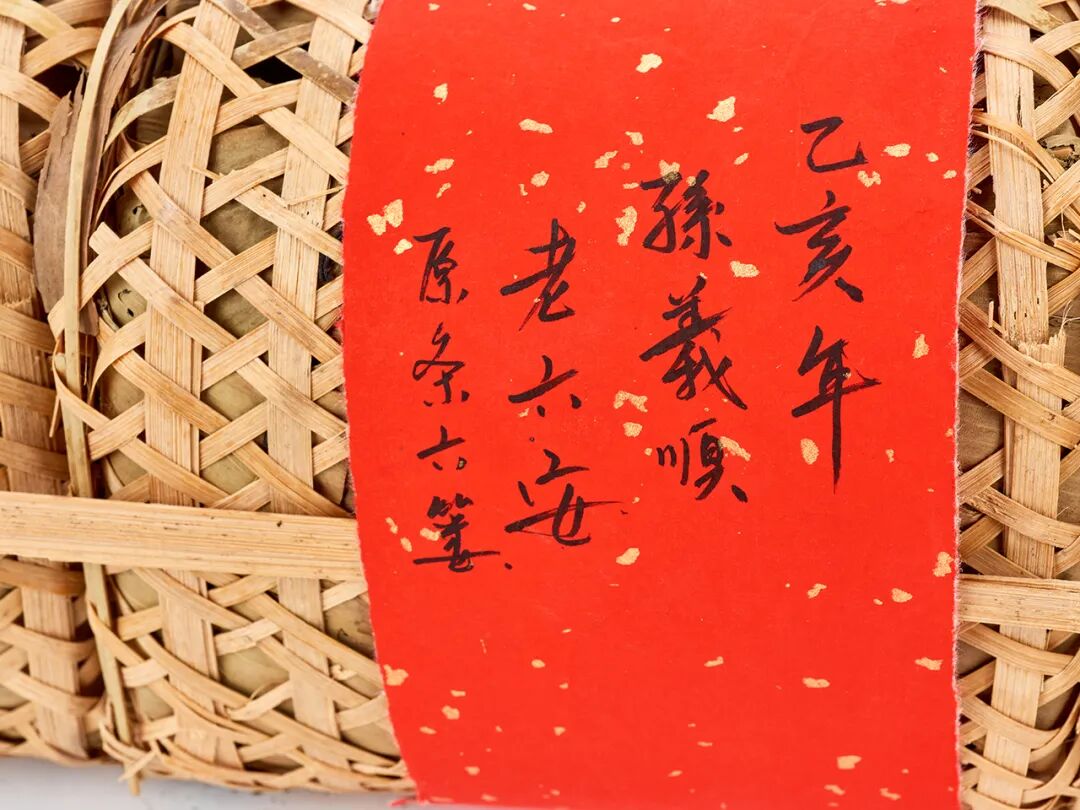 乙亥年
孫義順
老六安
原条六篓